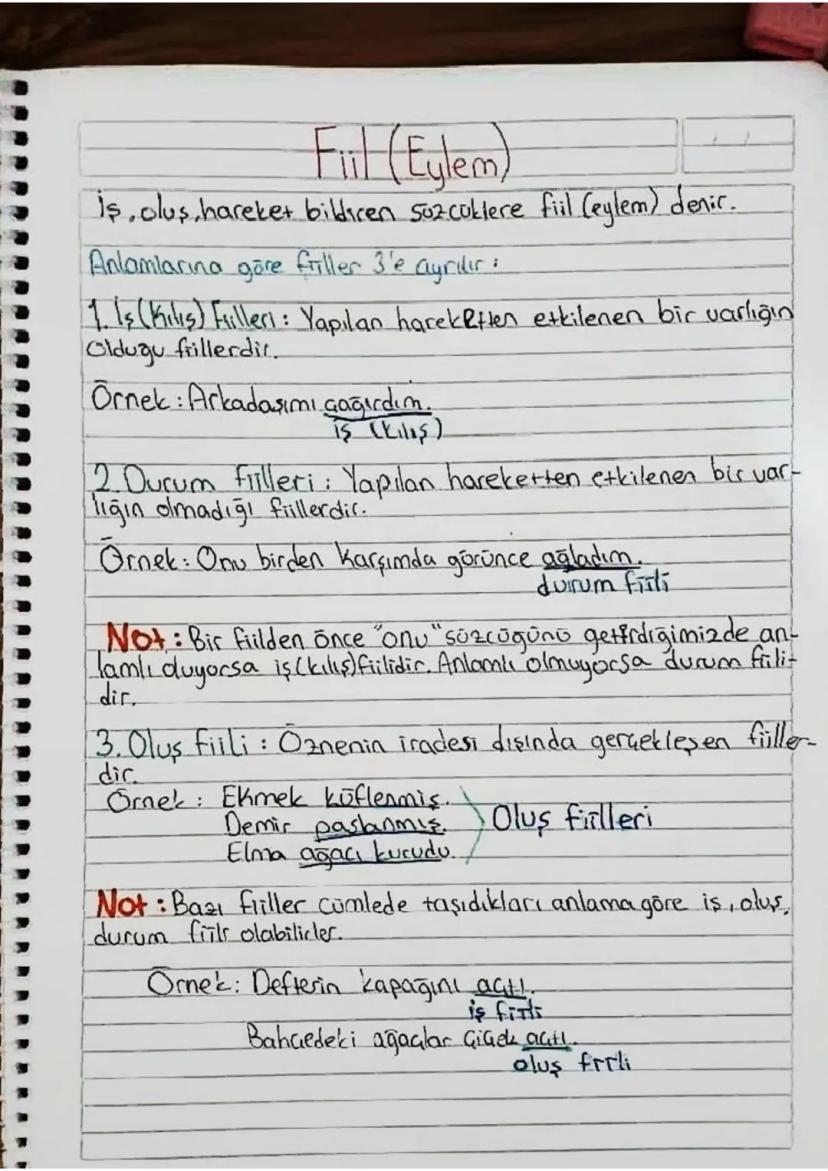 Fiil (Eylem)
İş, oluş, hareket bildiren sözcüklere fiil (eylem) denir.
Anlamlarına göre fiiller 3'e ayrılır :
1. İş (Kılış) Fiilleri : Yapılan hareketten etkilenen bir varlığın
olduğu fiillerdir.
Örnek : Arkadaşımı çağırdım.
iş (kılış)
2. Durum fiilleri : Yapılan hareketten etkilenen bir var-
lığın olmadığı fiillerdir.
Örnek : Onu birden karşımda görünce ağladım.
durum fiili
Not : Bir fiilden önce "onu" sözcüğünü getirdiğimizde an-
lamlı oluyorsa iş (kılış) fiilidir. Anlamlı olmuyorsa durum fiili-
dir.
3. Oluş fiili : Öznenin iradesi dışında gerçekleşen fiiller-
dir.
Örnek : Ekmek küflenmiş.
Demir paslanmış. Oluş fiilleri
Elma ağacı kurudu.
Not : Bazı fiiller cümlede taşıdıkları anlama göre iş, oluş,
durum fiili olabilirler.
Örnek : Defterin kapağını açtı.
iş fiili
Bahçedeki ağaçlar çiçek açtı.
oluş fiili